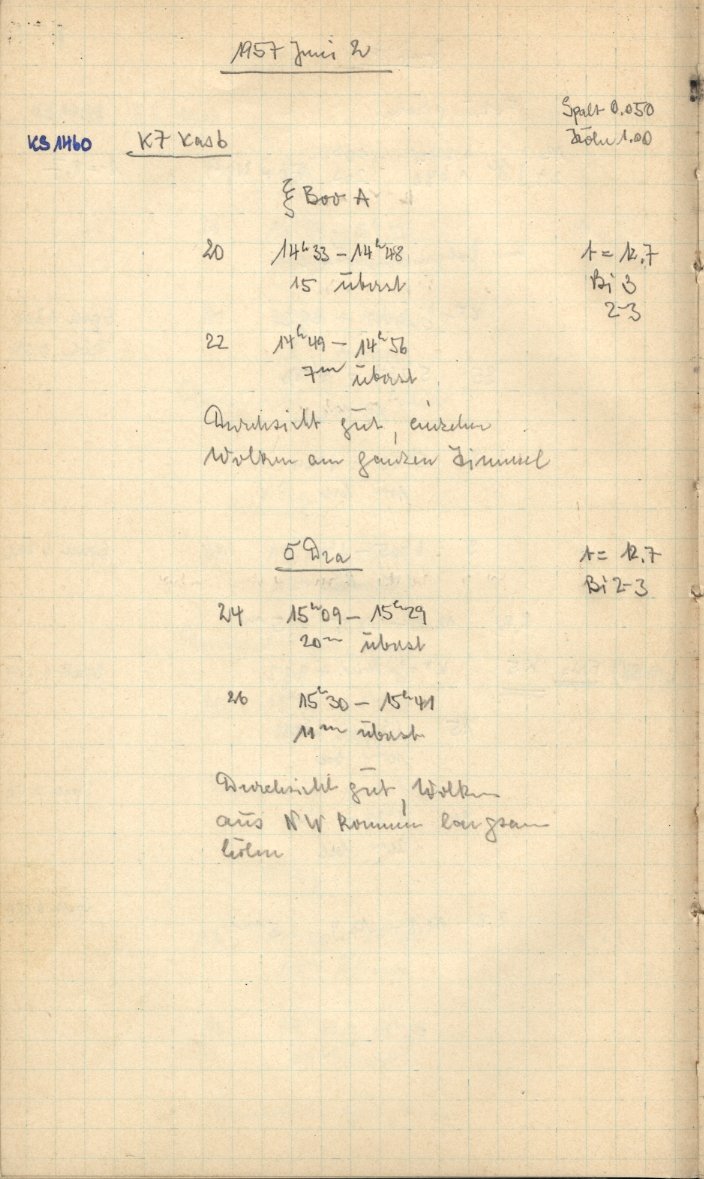 1957 Juni 2
Spalt 0.050
KS 1460 K7 Kasb Höhe 1.00
ξ Boo A
20 14ʰ33 – 14ʰ48 t = 12.7
15 überst Bi 3
2-3
22 14ʰ49 – 14ʰ56
7ᵐ überst
Durchsicht gut, einzelne
Wolken am ganzen Himmel
σ Dra t = 12.7
Bi 2-3
24 15ʰ09 – 15ʰ29
20ᵐ überst
26 15ʰ30 – 15ʰ41
11ᵐ überst
Durchsicht gut, Wolken
aus NW kommen langsam
höher